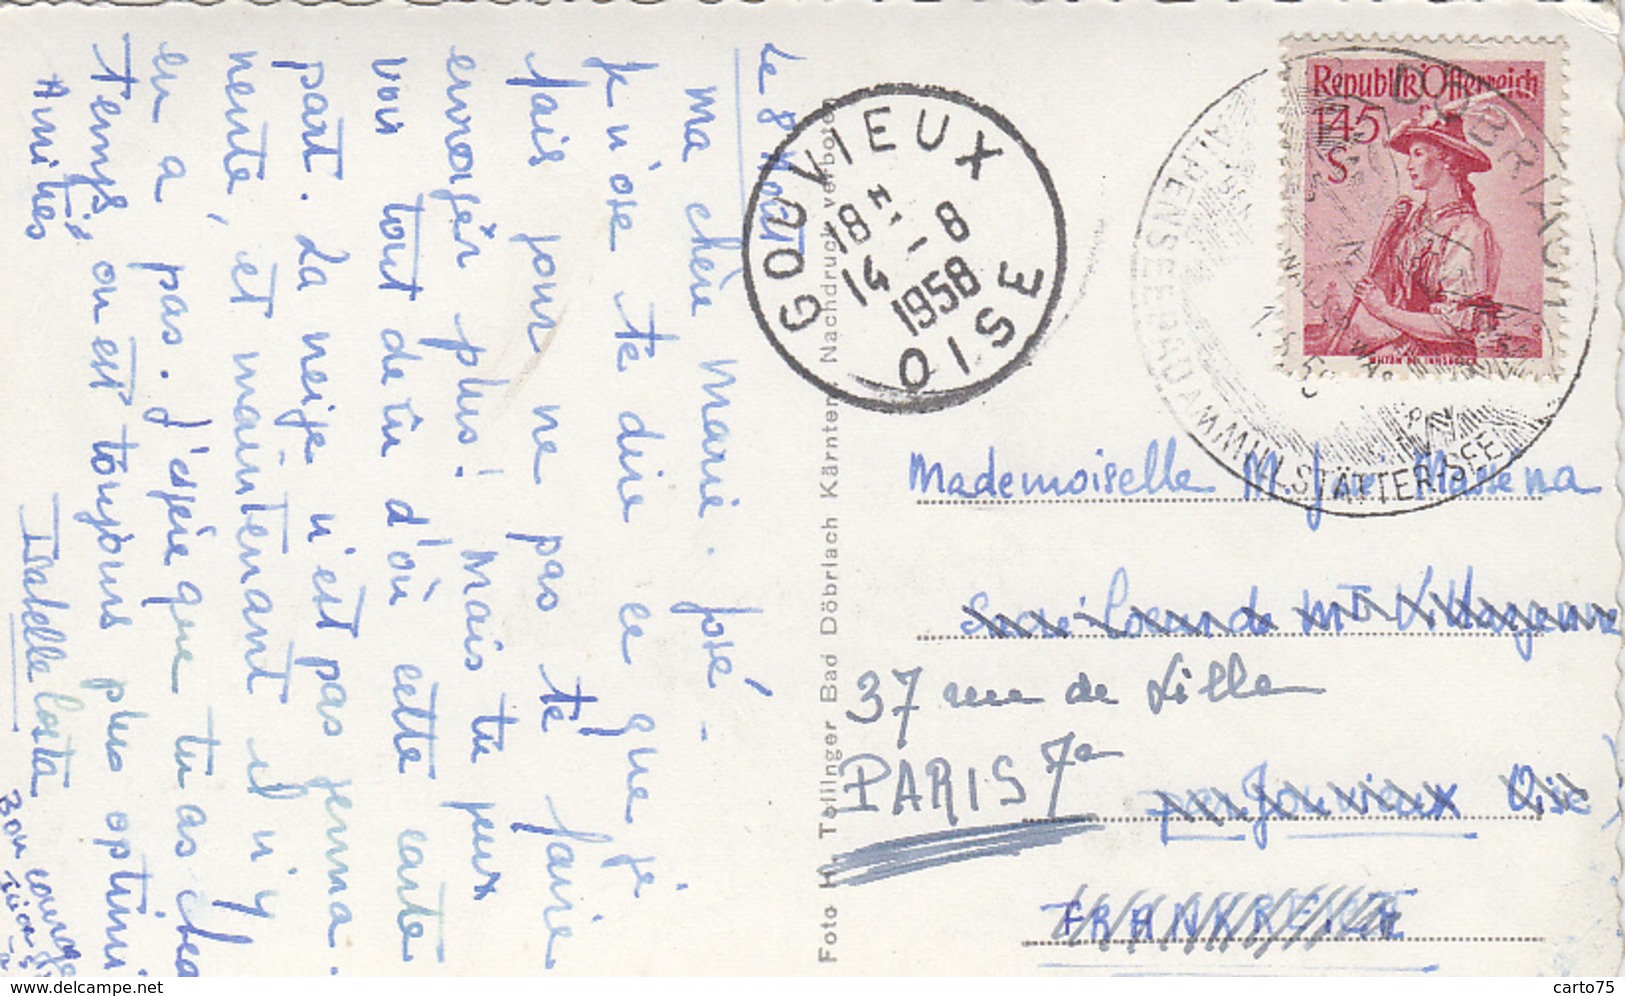 Le 8 Août
Ma chère Marie-José -
Je n'ose te dire ce que je
fais pour ne pas te faire
enrager plus! Mais tu peux
voir tout de tû d'où cette carte
part. La neije n'est pas ferma.
nente, et maintenant il n'y
en a pas. J'espère que tu as
temps, on est toujours plus optimi
Amitiés
Isabelle Costa
Bon courage
Foto H. Tollinger Bad Döbriach Kärnten Nachdruck verboten
GOUVIEUX
18H -8
14 1958
OISE
Republik Österreich
1.45
S
WILTEN BEI INNSBRUCK
DÖBRIACH
MILLSTÄTTER-SEE
Mademoiselle M. José Massena
37 rue de Lille
PARIS 7e
par Gouvieux Oise
FRANKREICH
www.delcampe.net
carto75